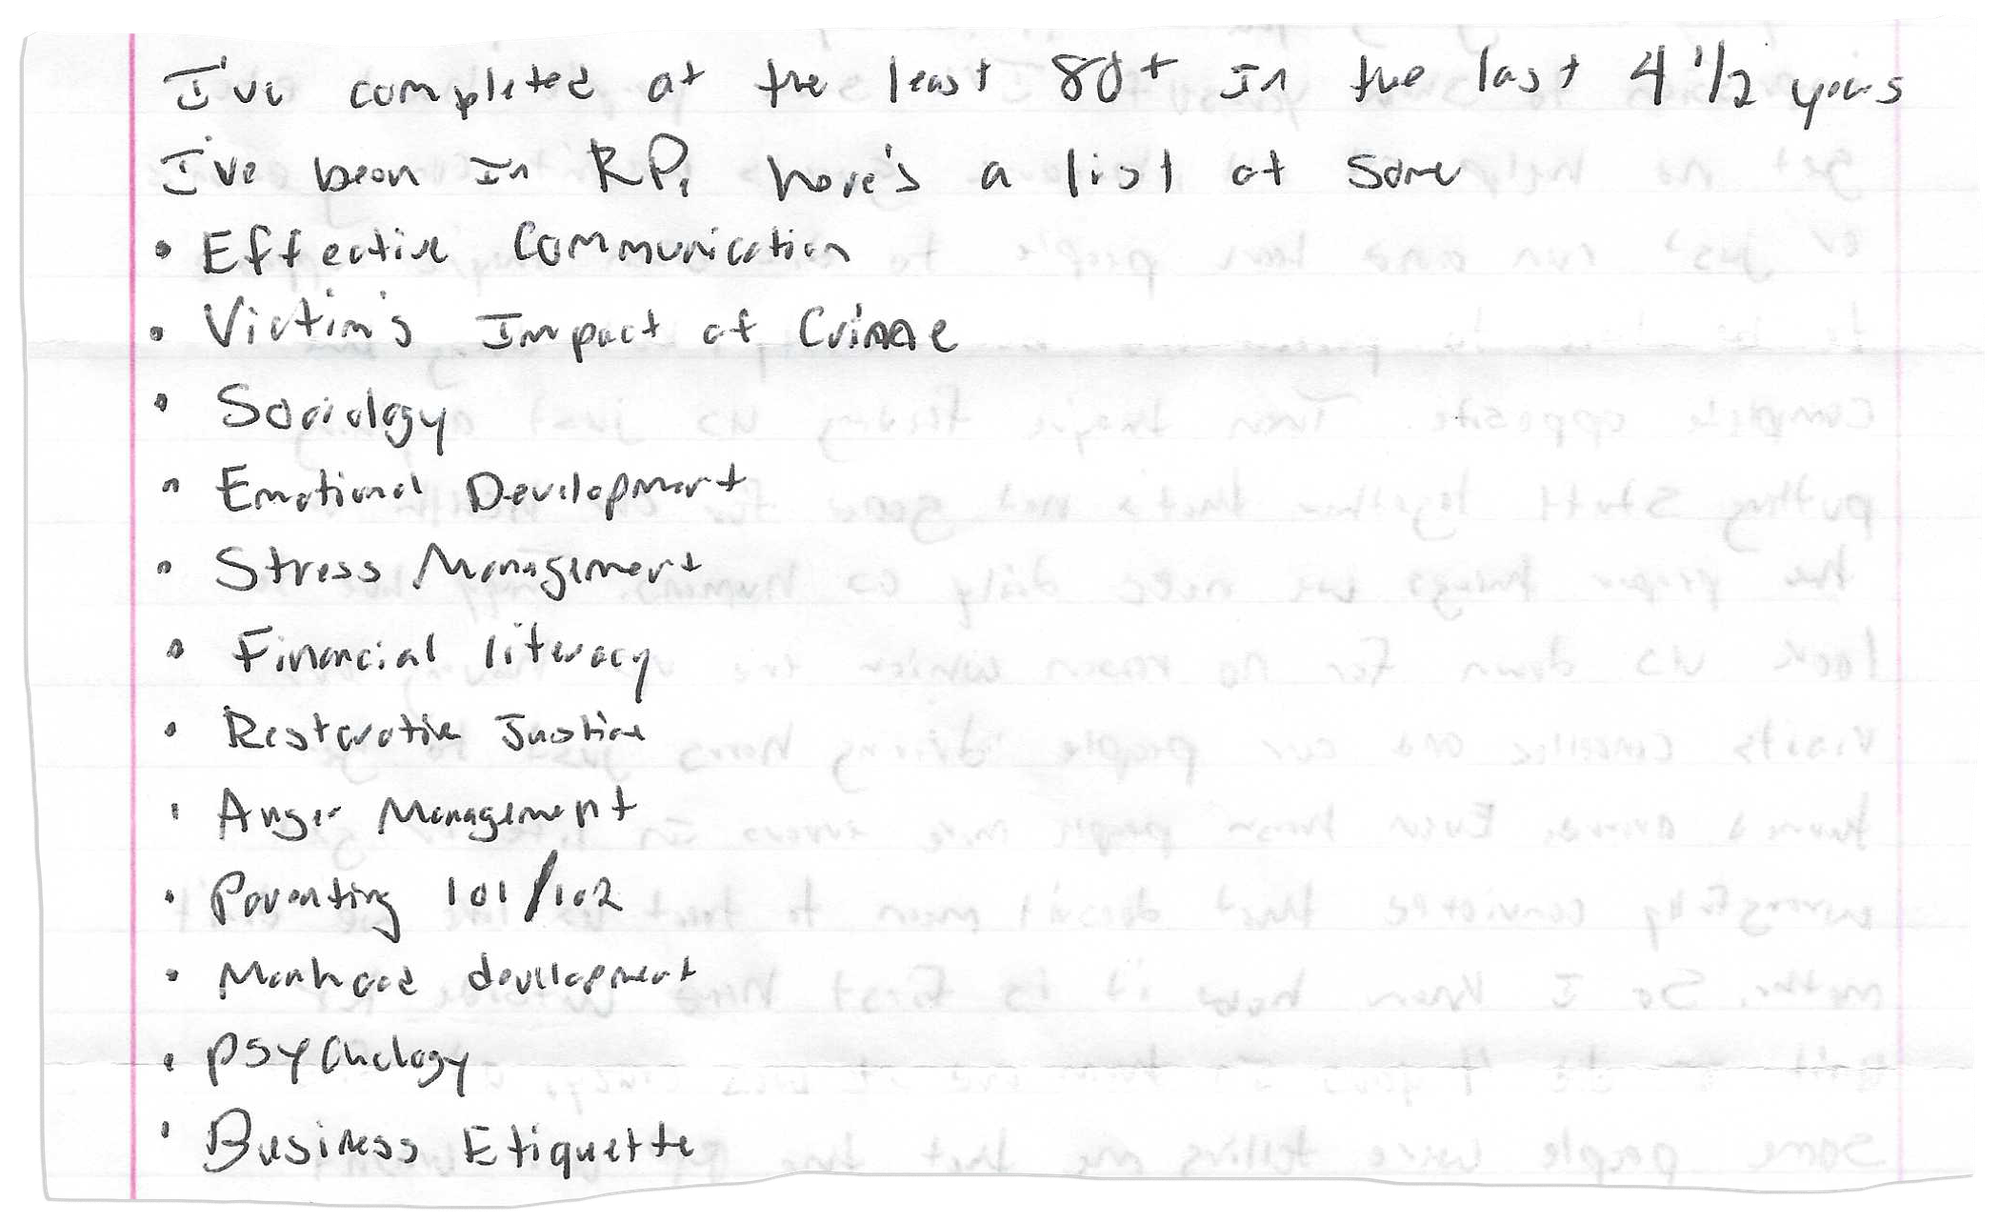 I've completed at the least 80+ In the last 4 1/2 years
I've been In RP, here's a list of some
• Effective Communication
• Victim's Impact of Crime
• Sociology
• Emotional Development
• Stress Management
• Financial literacy
• Restorative Justice
• Anger Management
• Parenting 101/102
• Manhood development
• Psychology
• Business Etiquette